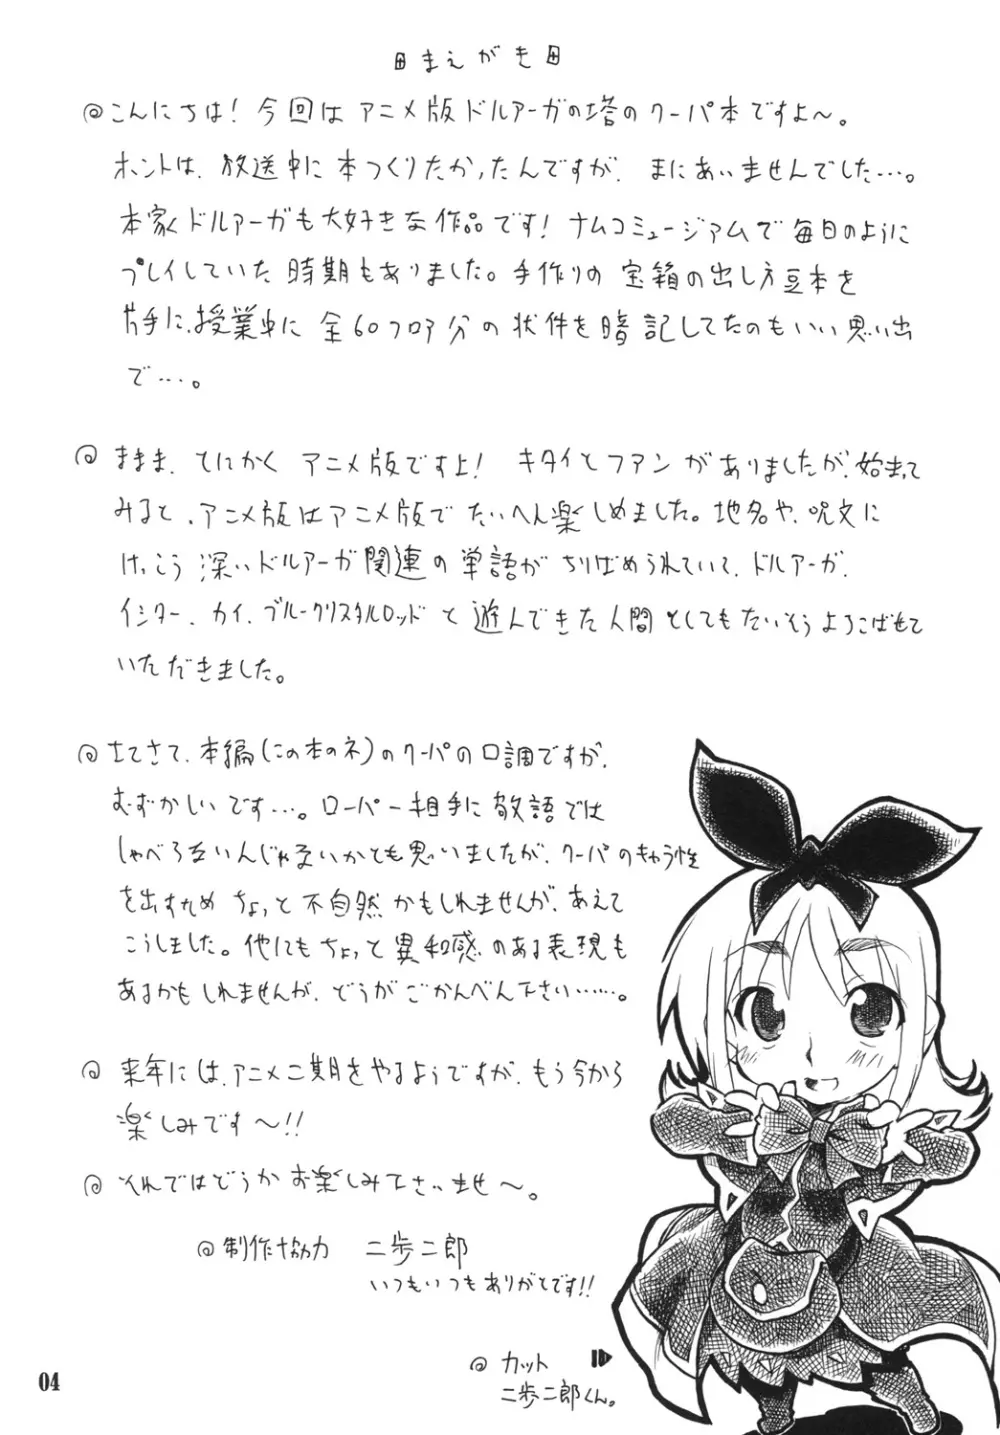 まえがき
◎こんにちは！今回はアニメ版ドルアーガの塔のクーパ本ですよ～。
ホントは、放送中に本つくりたかったんですが、まにあいませんでした…。
本家ドルアーガも大好きな作品です！ナムコミュージアムで毎日のように
プレイしていた時期もありました。手作りの宝箱の出し方豆本を
片手に、授業中に全60フロア分の状件を暗記してたのもいい思い出
で…。
◎ままま、とにかくアニメ版ですよ！キタイとファンがありましたが、始まって
みると、アニメ版はアニメ版でたいへん楽しめました。地名や、呪文に
けっこう深いドルアーガ関連の単語がちりばめられていて、ドルアーガ、
イシター、カイ、ブルークリスタルロッドと遊んできた人間としてもたいそうよろこばせて
いただきました。
◎さてさて、本編(この本のネ)のクーパの口調ですが、
むずかしいです…。ローパー相手に敬語では
しゃべらないんじゃないかとも思いましたが、クーパのキャラ性
を出すためちょっと不自然かもしれませんが、あえて
こうしました。他にもちょっと異和感のある表現も
あるかもしれませんが、どうかごかんべん下さい……。
◎来年には、アニメ二期をやるようですが、もう今から
楽しみです～!!
◎それではどうかお楽しみ下さいませ～。
◎制作協力 二歩二郎
いつもいつもありがとです!!
◎カット
二歩二郎くん。
04